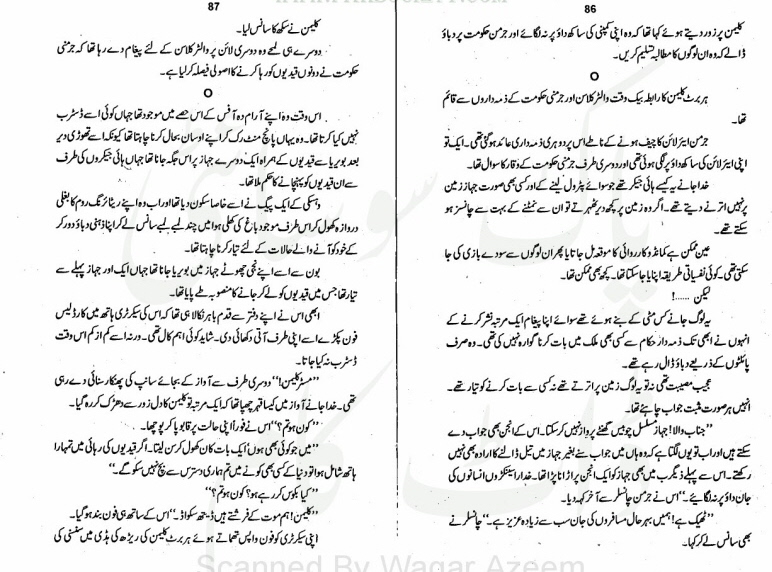 86
کلیمن پر زور دیتے ہوئے کہا تھا کہ وہ اپنی کمپنی کی ساکھ داؤ پر نہ لگائے اور جرمن حکومت پر دباؤ
ڈالے کہ وہ ان لوگوں کا مطالبہ تسلیم کریں۔
O
ہربرٹ کلیمن کا رابطہ بیک وقت والٹر کلاسن اور جرمنی حکومت کے ذمہ داروں سے قائم
تھا۔
جرمن ایئر لائن کا چیف ہونے کے ناطے اس پر دوہری ذمہ داری عائد ہو گئی تھی۔ ایک تو
اپنی ایئر لائن کی ساکھ داؤ پر لگی ہوئی تھی اور دوسری طرف جرمنی حکومت کے وقار کا سوال تھا۔
خدا جانے یہ کیسے ہائی جیکر تھے جو سوائے پٹرول لینے کے اور کسی بھی صورت جہاز زمین
پر نہیں اترنے دیتے تھے۔ اگر وہ زمین پر کچھ دیر ٹھہرتے تو ان سے نمٹنے کے بہت سے چانسز ہو
سکتے تھے۔
عین ممکن ہے کمانڈو کارروائی کا موقعہ مل جاتا یا پھر ان لوگوں سے سودے بازی کی جا
سکتی تھی۔ کوئی نفسیاتی طریقہ اپنایا جا سکتا تھا۔ کچھ بھی ممکن تھا۔
لیکن ......!
یہ لوگ جانے کس مٹی کے بنے ہوئے تھے سوائے اپنا پیغام ایک مرتبہ نشر کرنے کے
انہوں نے ابھی تک ذمہ دار حکام سے کسی بھی ملک میں بات کرنا گوارہ نہیں کی تھی۔ وہ صرف
پائلٹوں کے ذریعے دباؤ ڈال رہے تھے۔
عجیب مصیبت تھی نہ تو یہ لوگ زمین پر اترتے تھے نہ کسی سے بات کرنے کو تیار تھے۔
انہیں ہر صورت مثبت جواب چاہئے تھا۔
”جناب والا! جہاز مسلسل چوبیس گھنٹے پرواز نہیں کر سکتا۔ اس کے انجن بھی جواب دے
سکتے ہیں اور اب تو یوں لگتا ہے کہ وہ ہاں میں جواب سنے بغیر جہاز میں تیل ڈالنے کا ارادہ بھی نہیں
رکھتے۔ اس سے پہلے ذیگرب میں بھی جہاز کو ایک انجن پر اڑانا پڑا تھا۔ خدارا سینکڑوں انسانوں کی
جان داؤ پر نہ لگایئے۔“ اس نے جرمن چانسلر سے آخر کہہ دیا۔
”ٹھیک ہے! ہمیں بہر حال مسافروں کی جان سب سے زیادہ عزیز ہے۔“ چانسلر نے
بھی سانس لے کر کہا۔
87
کلیمن نے سکھ کا سانس لیا۔
دوسرے ہی لمحے وہ دوسری لائن پر والٹر کلاسن کے لئے پیغام دے رہا تھا کہ جرمنی
حکومت نے دونوں قیدیوں کو رہا کرنے کا اصولی فیصلہ کر لیا ہے۔
O
اس وقت وہ اپنے آرام دہ آفس کے اس حصے میں موجود تھا جہاں کوئی اسے ڈسٹرب
نہیں کیا کرتا تھا۔ وہ یہاں پانچ منٹ رک کر اپنے اوسان بحال کرنا چاہتا تھا کیونکہ اسے تھوڑی دیر
بعد بویریا سے قیدیوں کے ہمراہ ایک دوسرے جہاز پر اس جگہ جانا تھا جہاں ہائی جیکروں کی طرف
سے ان قیدیوں کو پہنچانے کا حکم ملا تھا۔
وہسکی کے ایک پیگ نے اسے خاصا سکون دیا تھا اور اب وہ اپنے ریٹائرنگ روم کا بغلی
دروازہ کھول کر اس طرف موجود باغ کی کھلی ہوا میں چند لمبے لمبے سانس لے کر اپنا ذہنی دباؤ دور کر
کے خود کو آنے والے حالات کے لئے تیار کرنا چاہتا تھا۔
بون سے اسے اپنے نجی چھوٹے جہاز میں بویریا جانا تھا جہاں ایک اور جہاز پہلے سے
تیار تھا جس میں قیدیوں کو لے کر جانے کا منصوبہ طے پایا تھا۔
ابھی اس نے اپنے دفتر سے قدم باہر نکالا ہی تھا کہ اس کی سیکرٹری ہاتھ میں کارڈلیس
فون پکڑے اسے اپنی طرف آتی دکھائی دی۔ شاید کوئی اہم کال تھی۔ ورنہ اسے کم از کم اس وقت
ڈسٹرب نہ کیا جاتا۔
”مسٹر کلیمن!“ دوسری طرف سے آواز کے بجائے سانپ کی پھنکار سنائی دے رہی
تھی۔ خدا جانے آواز میں کیسا قہر چھپا تھا کہ ایک مرتبہ تو کلیمن کا دل زور سے دھڑک کر رہ گیا۔
”کون ہو تم؟“ اس نے فوراً اپنی حالت پر قابو پا کر پوچھا۔
”میں جو کوئی بھی ہوں ایک بات کان کھول کر سن لینا۔ اگر قیدیوں کی رہائی میں تمہارا
ہاتھ شامل ہوا تو دنیا کے کسی بھی کونے میں تم ہماری دسترس سے بچ نہیں سکو گے۔“
”کیا بکواس کر رہے ہو؟ کون ہو تم؟“
”کلیمن! ہم موت کے فرشتے ہیں ڈیتھ سکواڈ۔“ اس کے ساتھ ہی فون بند ہو گیا۔
اپنی سیکرٹری کو فون واپس تھماتے ہوئے ہربرٹ کلیمن کی ریڑھ کی ہڈی میں سنسنی کی
Scanned By Waqar Azeem